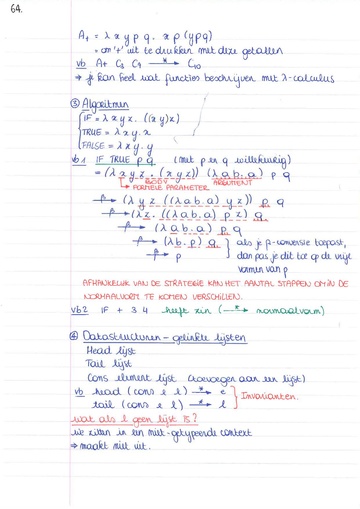 64.
A+ = λ x y p q. x p (y p q)
= om '+' uit te drukken met deze getallen
vb A+ C₃ C₇ →* C₁₀
→ je kan heel wat functies beschrijven met λ-calculus
③ Algoritmen
IF = λ x y z. ((x y) z)
TRUE = λ x y. x
FALSE = λ x y. y
vb 1 IF TRUE p q (met p en q willekeurig)
= (λ x y z. (x y z)) (λ a b. a) p q
BODY ARGUMENT
→ FORMELE PARAMETER
→β (λ y z. ((λ a b. a) y z)) p q
→β (λ z. ((λ a b. a) p z) q
→β (λ a b. a) p q
→β (λ b. p) q
→β p
als je β-conversie toepast, dan pas je dit toe op de vrije vormen van p
AFHANKELIJK VAN DE STRATEGIE KAN HET AANTAL STAPPEN OM IN DE
NORMAALVORM TE KOMEN VERSCHILLEN.
vb 2 IF + 3 4 heeft zin (→* normaalvorm)
④ Datastructuren - gelinkte lijsten
Head lijst
Tail lijst
Cons element lijst (toevoegen aan een lijst)
vb head (cons e l) →* e
tail (cons e l) →* l
Invarianten.
wat als l geen lijst is?
we zitten in een niet-getypeerde context
⇒ maakt niet uit.